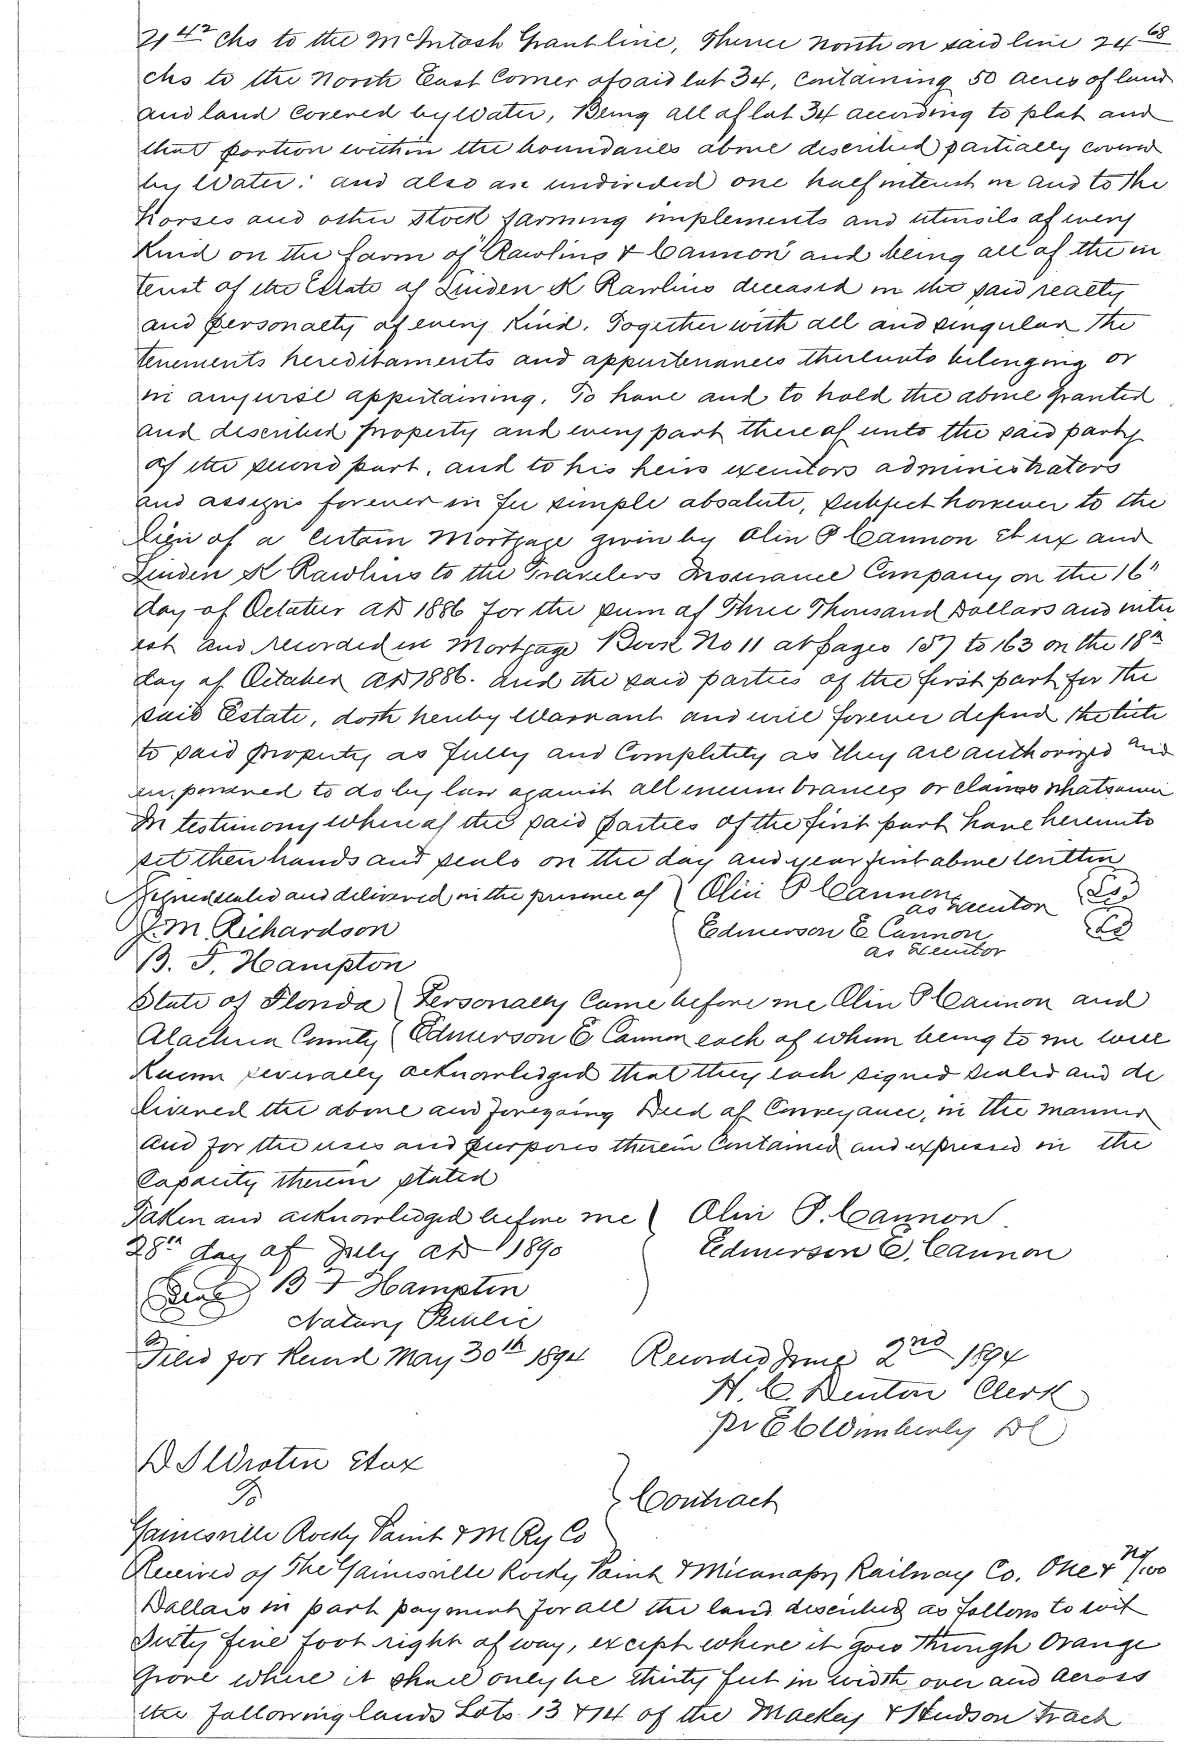 21 42 chs to the McIntosh Grant line, Thence North on said line 24 68
chs to the North East Corner of said lot 34, containing 50 acres of land
and land covered by Water, Being all of lot 34 according to plat and
that portion within the boundaries above described partially covered
by Water: and also an undivided one half interest in and to the
horses and other stock farming implements and utensils of every
kind on the farm of "Rawlins & Cannon" and being all of the in
terest of the Estate of Linden K Rawlins deceased in the said realty
and personalty of every kind. Together with all and singular the
tenements hereditaments and appurtenances thereunto belonging or
in anywise appertaining. To have and to hold the above granted
and described property and every part thereof unto the said party
of the second part, and to his heirs executors administrators
and assigns forever in fee simple absolute, subject however to the
lien of a certain Mortgage given by Olin P Cannon et ux and
Linden K Rawlins to the Travelers Insurance Company on the 16"
day of October AD 1886 for the sum of Three Thousand Dollars and inter
est and recorded in Mortgage Book No 11 at pages 157 to 163 on the 18th
day of October AD 1886. and the said parties of the first part for the
said Estate, doth hereby Warrant and will forever defend the title
to said property as fully and completely as they are authorized and
empowered to do by law against all incumbrances or claims whatsoever
In testimony whereof the said parties of the first part have hereunto
set their hands and seals on the day and year first above written
Signed sealed and delivered in the presence of } Olin P Cannon as Executor LS
J. M. Richardson Edmerson E Cannon LS
B. F. Hampton as Executor
State of Florida } Personally came before me Olin P Cannon and
Alachua County } Edmerson E Cannon each of whom being to me well
known severally acknowledged that they each signed sealed and de
livered the above and foregoing Deed of Conveyance, in the manner
and for the uses and purposes therein contained and expressed in the
Capacity therein stated
Taken and acknowledged before me } Olin P. Cannon
28th day of July AD 1890 Edmerson E. Cannon
Seal B F Hampton
Notary Public
Filed for Record May 30th 1894 Recorded June 2nd 1894
H. C. Denton Clerk
pr E C Wimberly DC
D S Wroten Et ux
To } Contract
Gainesville Rocky Point & M Ry Co
Received of The Gainesville Rocky Point & Micanopy Railway Co. One & no/100
Dollars in part payment for all the land described as follows to wit
Sixty five foot right of way, except where it goes through Orange
Grove where it shall only be thirty feet in width over and across
the following lands Lots 13 & 14 of the Mackey & Hudson tract